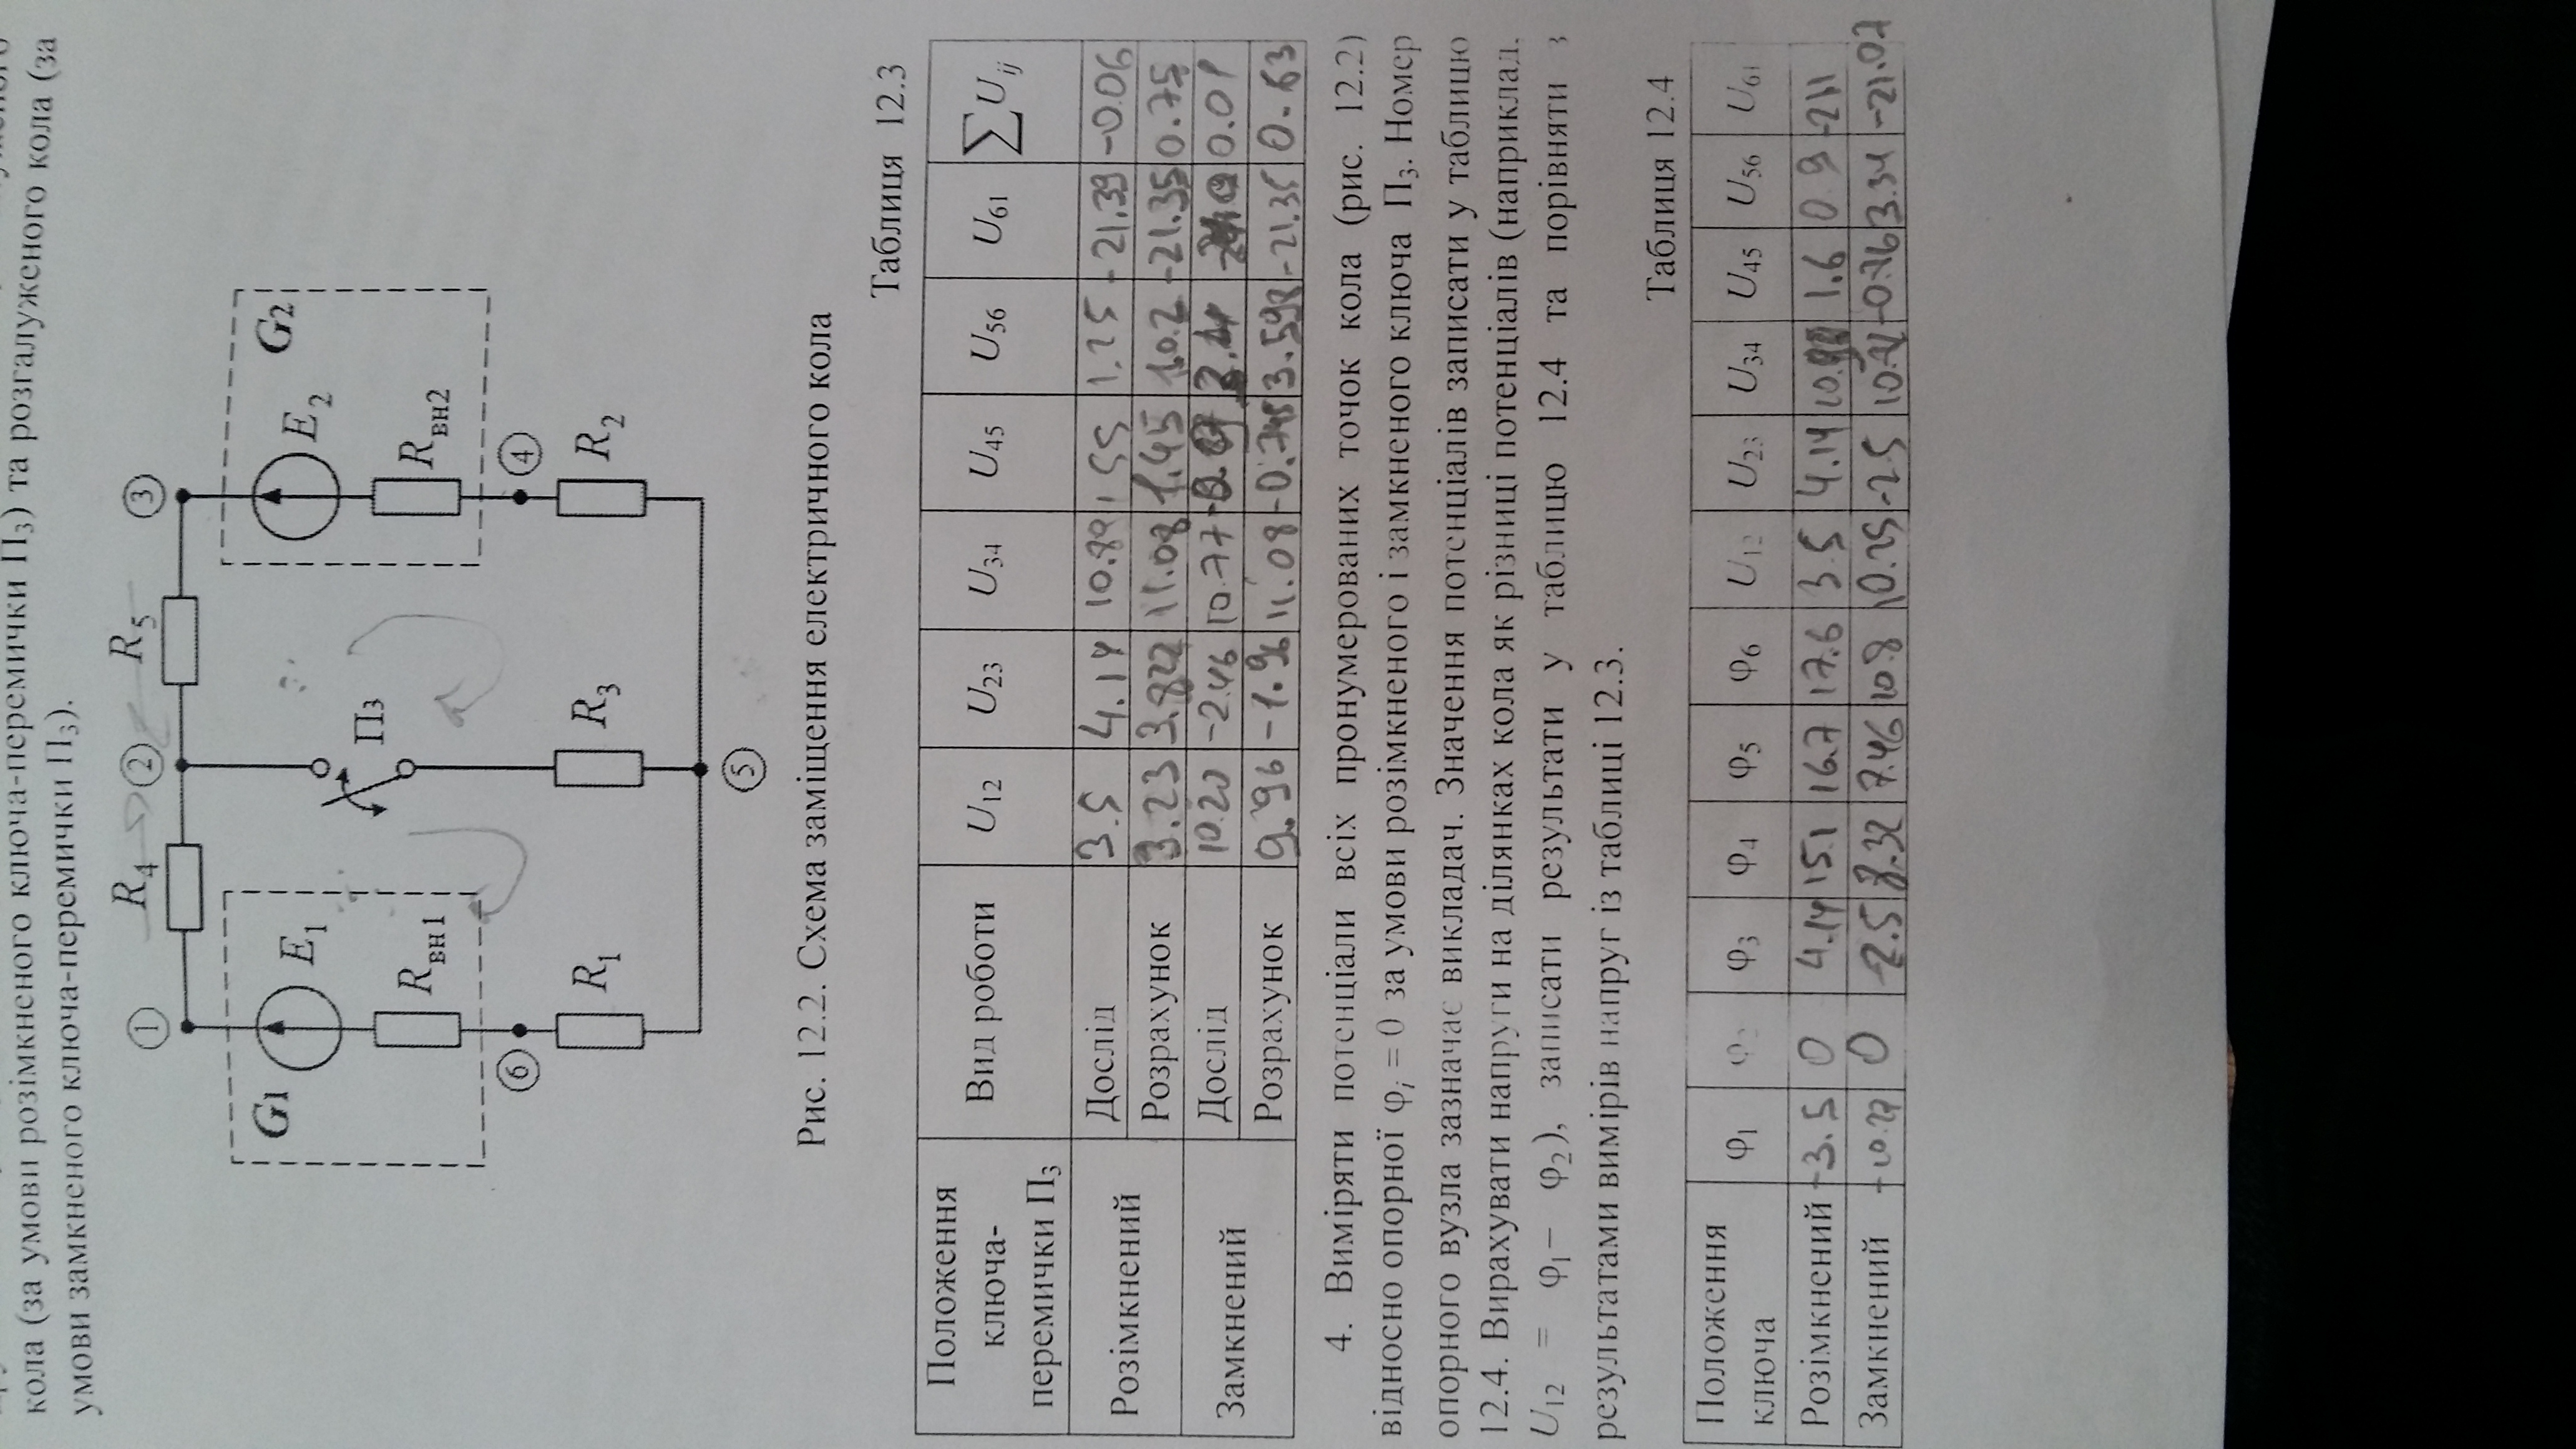 кола (за умови розімкненого ключа-перемички П3) та розгалуженого кола (за
умови замкненого ключа-перемички П3).
1 R4 2 R5 3
G1 E1 E2 G2
П3
Rвн1 Rвн2
6 4
R1 R3 R2
5
Рис. 12.2. Схема заміщення електричного кола
Таблиця 12.3
Положення ключа-перемички П3 Вид роботи U12 U23 U34 U45 U56 U61 ∑Uij
Розімкнений Дослід 3.5 4.14 10.89 1.55 1.25 -21.39 -0.06
Розрахунок 3.23 3.822 11.08 1.45 10.2 -21.35 0.75
Замкнений Дослід 10.20 -2.46 10.77 0.01
Розрахунок 9.96 -1.96 11.08 -0.745 3.598 -21.35 0.63
4. Виміряти потенціали всіх пронумерованих точок кола (рис. 12.2)
відносно опорної φi = 0 за умови розімкненого і замкненого ключа П3. Номер
опорного вузла зазначає викладач. Значення потенціалів записати у таблицю
12.4. Вирахувати напруги на ділянках кола як різниці потенціалів (наприклад,
U12 = φ1– φ2), записати результати у таблицю 12.4 та порівняти з
результатами вимірів напруг із таблиці 12.3.
Таблиця 12.4
Положення ключа φ1 φ2 φ3 φ4 φ5 φ6 U12 U23 U34 U45 U56 U61
Розімкнений -3.5 0 4.14 15.1 16.7 17.6 3.5 4.14 1.6 0.9 -21.1
Замкнений 0 -2.5 8.32 7.46 10.8 10.25 -2.5 -0.76 3.34 -21.07